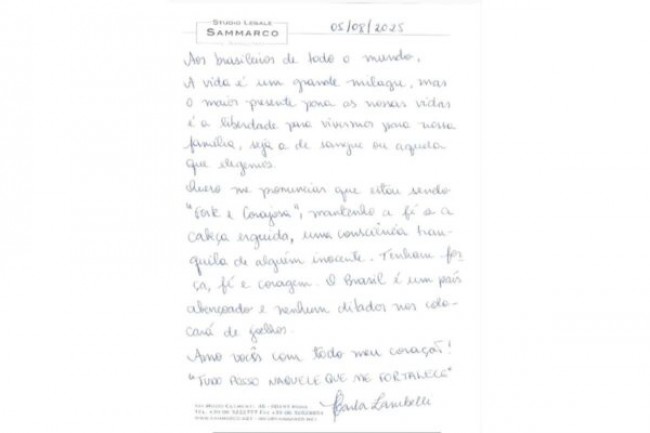 STUDIO LEGALE
SAMMARCO
05/08/2025
Aos brasileiros de todo o mundo,
A vida é um grande milagre, mas
o maior presente para as nossas vidas
é a liberdade para vivermos para nossa
família, seja a de sangue ou aquela
que elegemos.
Quero me pronunciar que estou sendo
"Forte e Corajosa", mantenho a fé e a
cabeça erguida, uma consciência tran-
quila de alguém inocente. Tenham for-
ça, fé e coragem. O Brasil é um país
abençoado e nenhum ditador nos colo-
cará de joelhos.
Amo vocês com todo meu coração!
"TUDO POSSO NAQUELE QUE ME FORTALECE"
Carla Zambelli
ROMA
TEL. +39 06
FAX +39 06
WWW.SAMMARCO.NET